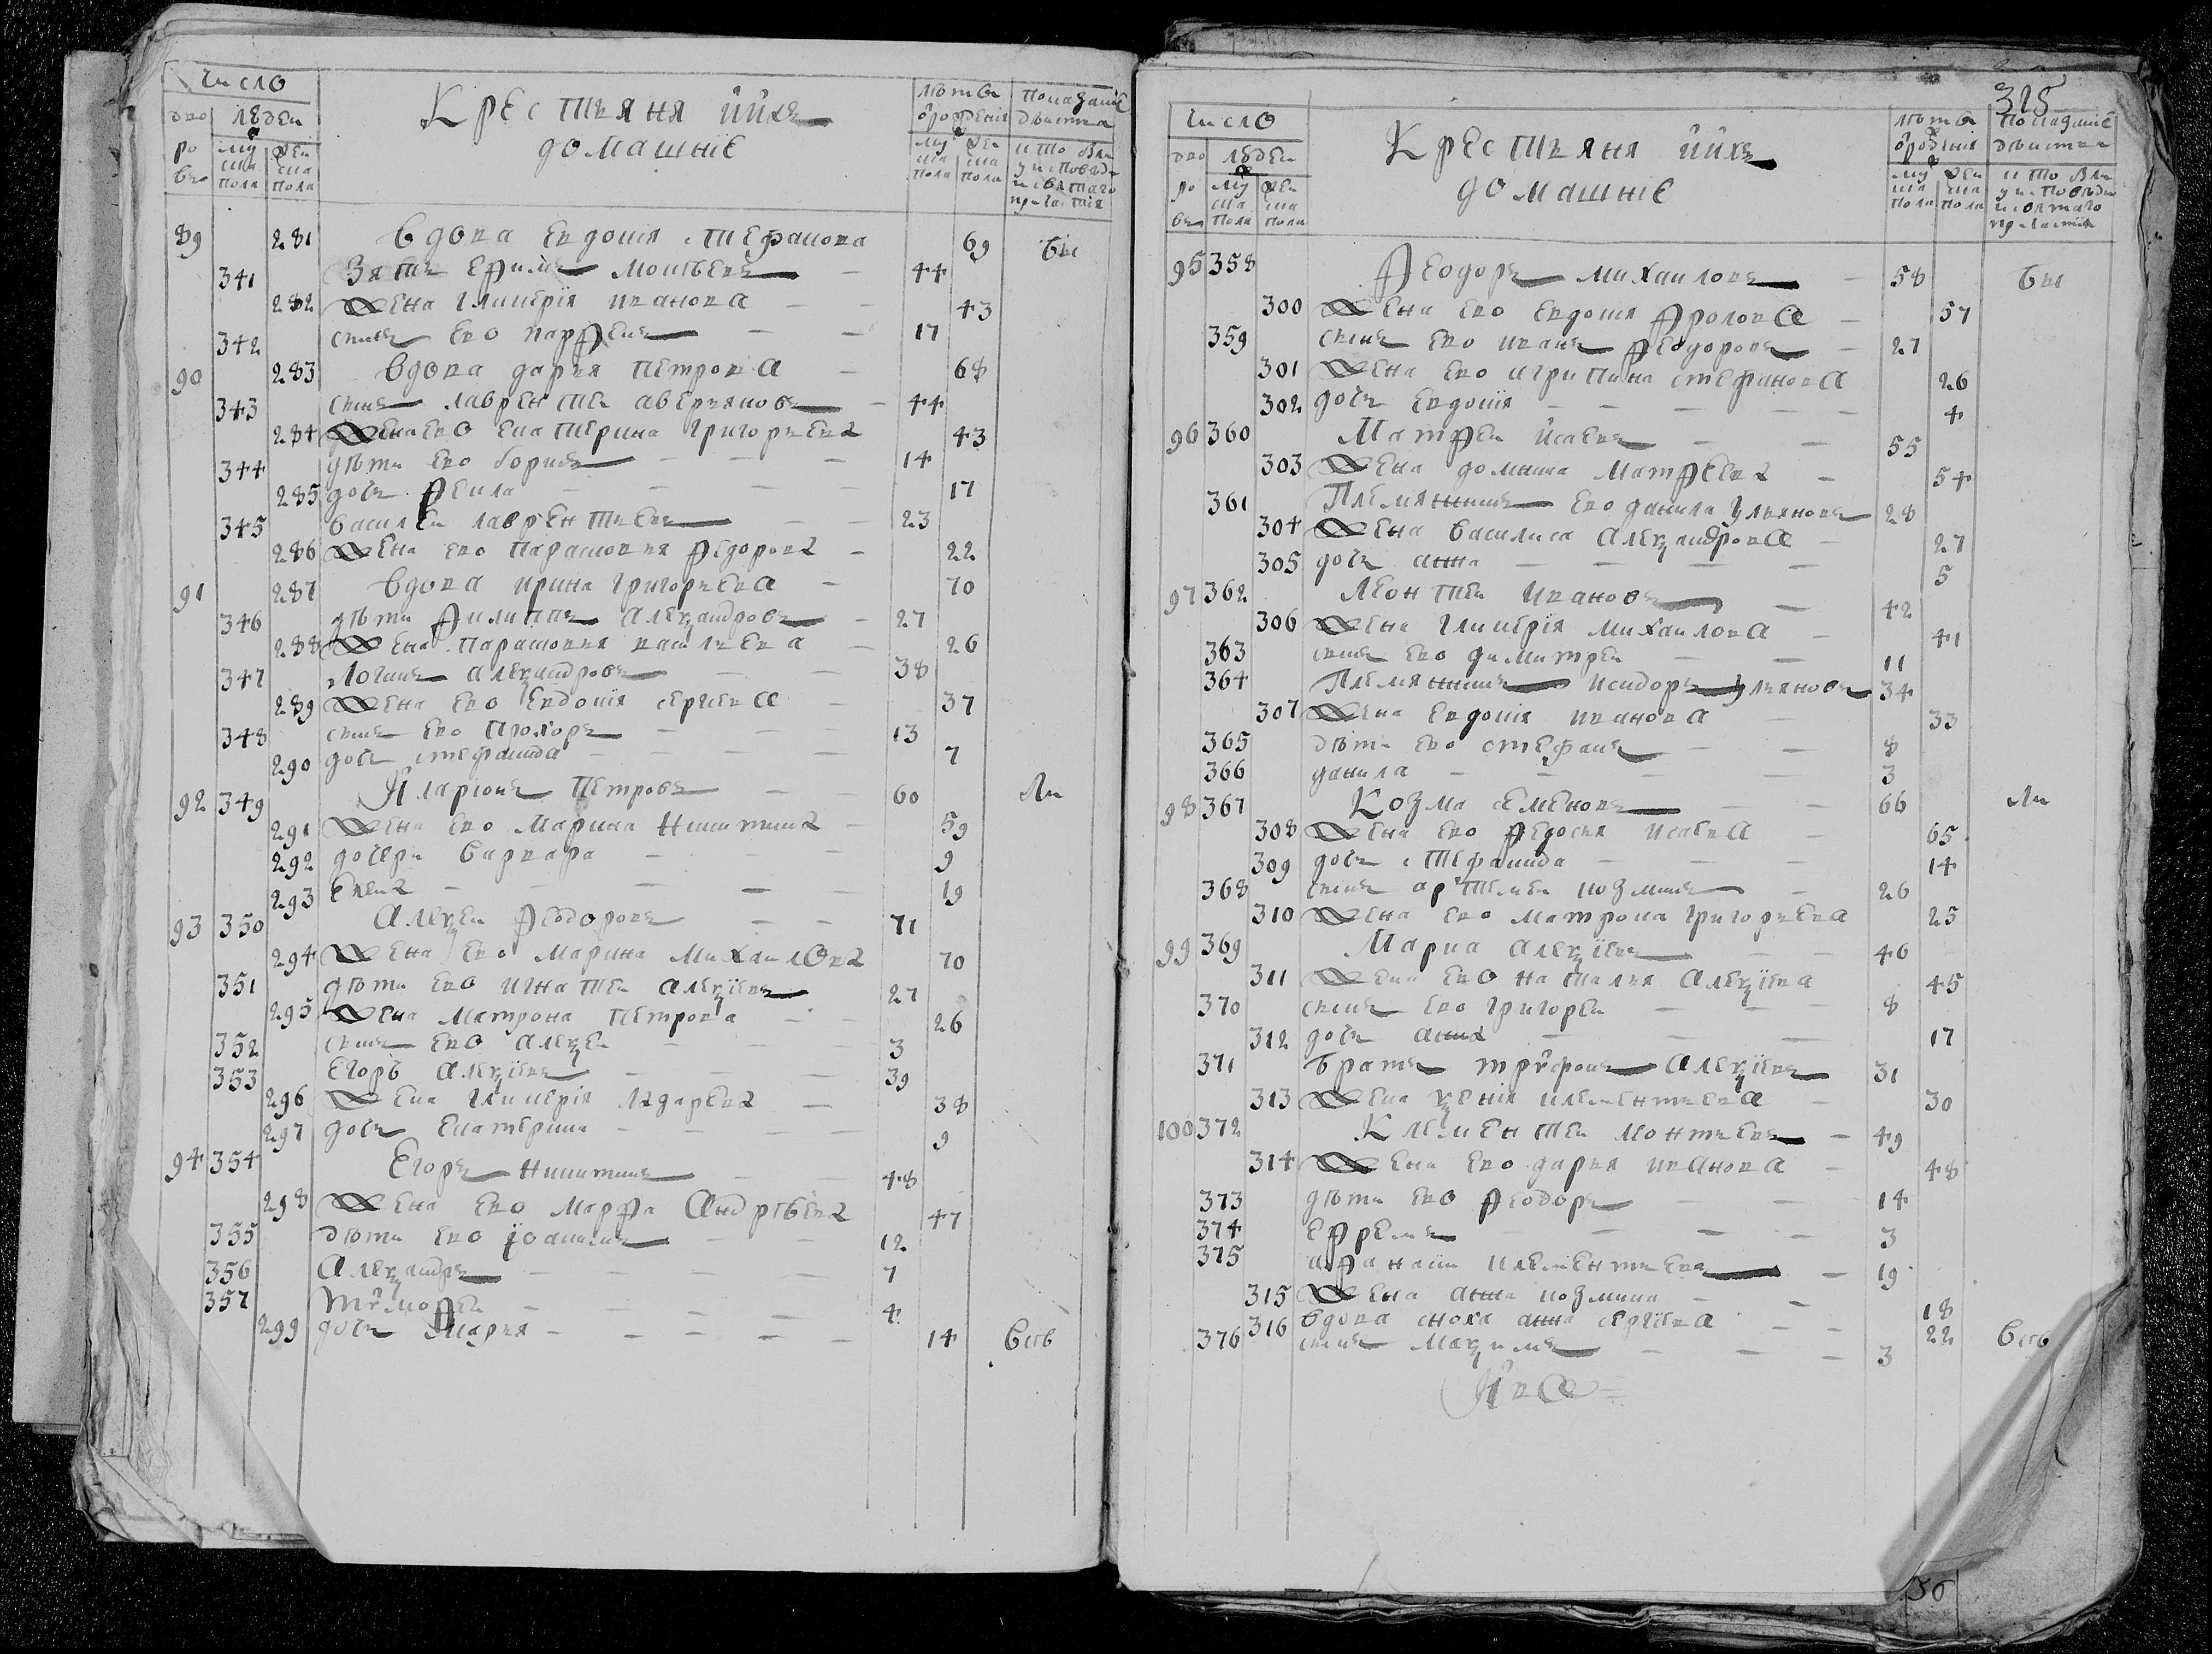 Число
дво
ро
въ
людеи
му
ска
пола
жен
ска
пола
Крестьяня ййхъ
домашніе
лѣтъ
ѿ рожденія
му
ска
пола
жен
ска
пола
Показаніе
дѣиства
кто былъ
у исповѣди
и святаго
причастія
89 281 вдова евдокія стефанова 69 бы
341 Зять ефимъ моисѣевъ — 44
282 жена гликерія иванова — — 43
342 сынъ ево парфенъ — — 17
90 283 вдова дарья петрова — 68
343 сынъ лаврентеи аверьяновъ — 44
284 жена ево екатерина григорьева 43
344 дѣти ево борисъ — — — 14
285 дочь фекла — — — — 17
345 василеи лаврентьевъ — — 23
286 жена ево парасковья федорова — 22
91 287 вдова ирина григорьева — 70
346 дѣти филиппъ александровъ — 27
288 жена парасковья василиева — 26
347 Логинъ александровъ — — 38
289 жена ево евдокія сергиева — 37
348 сынъ ево прохоръ — — — 13
290 дочь стефанида — — — — 7
92 349 Иларіонъ Петровъ — — 60 ли
291 жена ево марина никитина — 59
292 дочери варвара — — — 9
293 — — — — — 19
93 350 алеѯеи феодоровъ — — 71
294 жена ево марина михаилова 70
351 дѣти ево игнатеи алеѯіевъ 27
295 жена матрона петрова — — 26
352 сынъ ево алеѯеи — — — 3
353 егоръ алеѯіевъ — — — 39
296 жена гликерія лазарева — 38
297 дочь екатерина — — — — 9
94 354 Егоръ никитинъ — — 48
298 жена ево марфа андрѣева 47
355 дѣти ево іоакимъ — — 12
356 алеѯандръ — — — — 7
357 тѵмофеи — — — — 4
299 дочь марья — — — — — 14 всѣ
315
Число
дво
ро
въ
людеи
му
ска
пола
жен
ска
пола
Крестьяня ййхъ
домашніе
лѣтъ
ѿ рожденія
му
ска
пола
жен
ска
пола
Показаніе
дѣиства
кто былъ
у исповѣди
и святаго
причастія
95 358 феодоръ михаиловъ — 58 бы
300 жена ево евдокія фролова — 57
359 сынъ ево иванъ феодоровъ — 27
301 жена ево агрипина стефанова 26
302 дочь евдокія — — — — — 4
96 360 Матфеи исаевъ — — 55
303 жена домника матфеева — 54
361 племянникъ ево данила ульяновъ 28
304 жена василиса алеѯандрова — 27
305 дочь анна — — — — 5
97 362 леонтеи ивановъ — 42
306 жена гликерія михаилова — 41
363 сынъ ево димитреи — — 11
364 племянникъ исидоръ ульяновъ 34
307 жена евдокія иванова — 33
365 дѣти ево стефанъ — — 8
366 данила — — — — 3
98 367 Козма семеновъ — — 66 ли
308 жена ево федосья исаева — 65
309 дочь стефанида — — — 14
368 сынъ артемеи козминъ — 26
310 жена ево матрона григорьева 25
99 369 Марка алеѯіевъ — — 46
311 жена ево наталья алеѯіева 45
370 сынъ ево григореи — — — 8
312 дочь анна — — — 17
371 братъ трѵфонъ алеѯіевъ 31
313 жена ѯенія клементьева — 30
100 372 Клементеи леонтьевъ — 49
314 жена ево дарья иванова — 48
373 дѣти ево феодоръ — — 14
374 ефремъ — — — — 3
375 афанасіи клементьевъ — 19
315 жена анна козмина — — 18
316 вдова сноха анна сергіева — — 22 всѣ
376 сынъ маѯимъ — — — 3